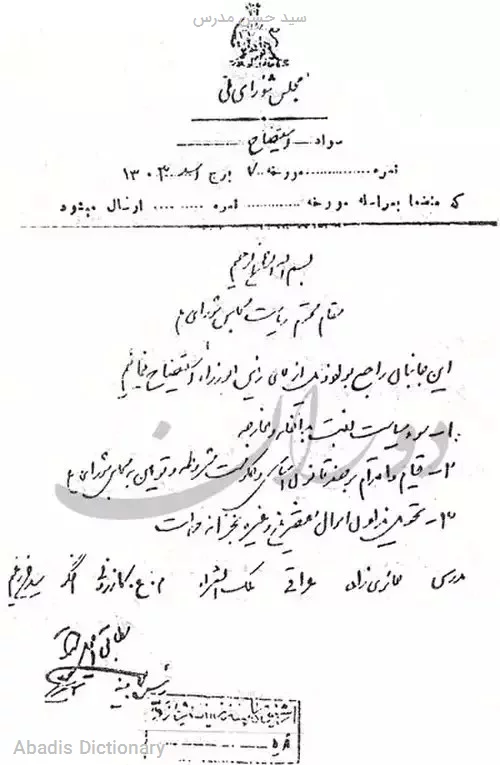 سید حسن مدرس
مجلس شورای ملی
سواد استیضاح
نمره ............ مورخه ۷ برج اسد ۱۳۰۳
که منضما بمراسله مورخه ............ نمره ............ ارسال میشود
بسم الله الرحمن الرحیم
مقام محترم ریاست مجلس شورای
این جانبان راجع بمواد ذیل از آقای رئیس الوزراء استیضاح مینمائیم
۱- سوء سیاست نسبت بداخله و خارجه
۲- قیام و اقدام بر ضد قانون اساسی و حکومت مشروطه و توهین به مجلس شورای
۳- تحویل ندادن اموال مقصرین و غیره بخزانه دولت
مدرس حائری‌زاده عراقی ملک الشعراء کازرونی اخگر سید
دوران
رئیس کابینه
نمره
Abadis Dictionary